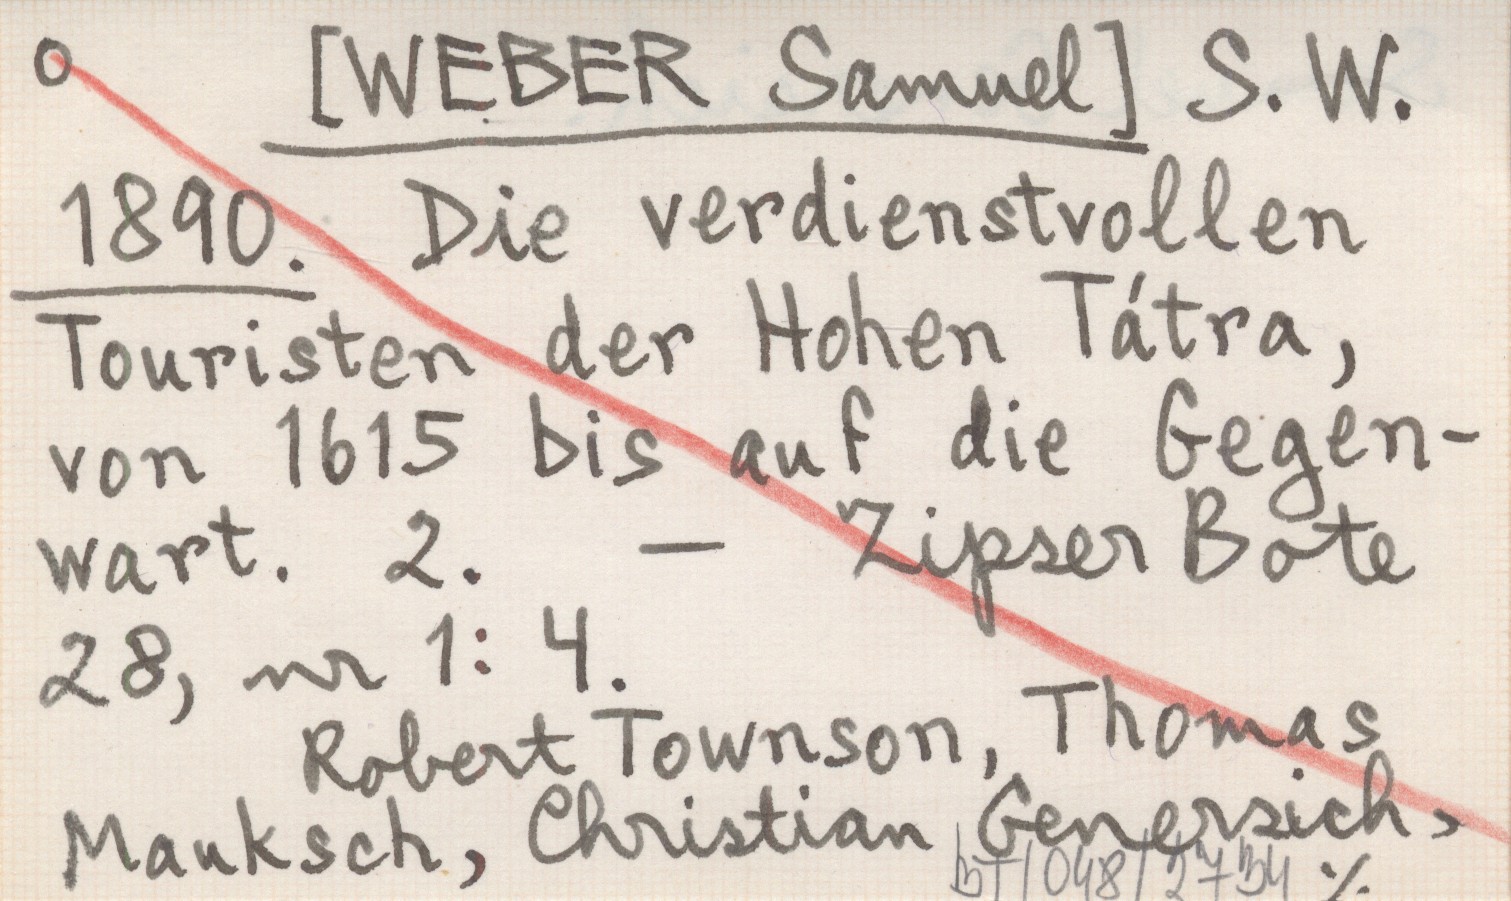 o [WEBER Samuel] S. W.
1890. Die verdienstvollen
Touristen der Hohen Tátra,
von 1615 bis auf die Gegen-
wart. 2. — Zipser Bote
28, nr 1: 4.
Robert Townson, Thomas
Mauksch, Christian Genersich,
bT/048/2734 ·/.